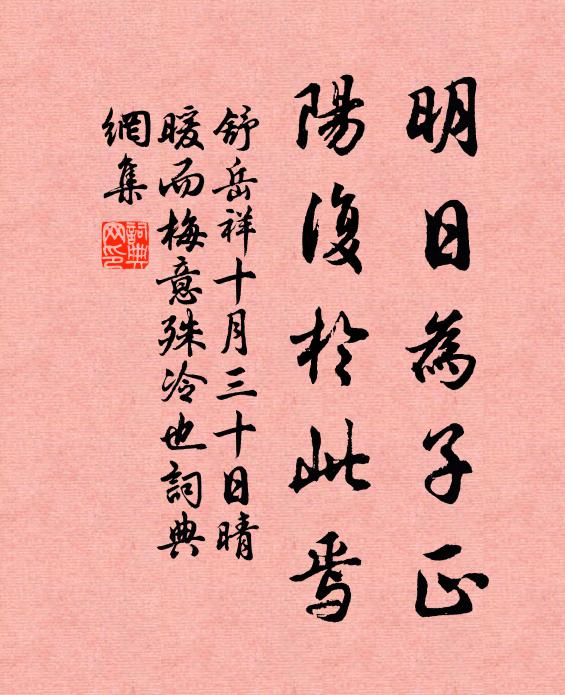 明日為子正
陽復於此焉
舒岳祥十月三十日晴
暖而梅意殊冷也詞典
網集
詞典
网印